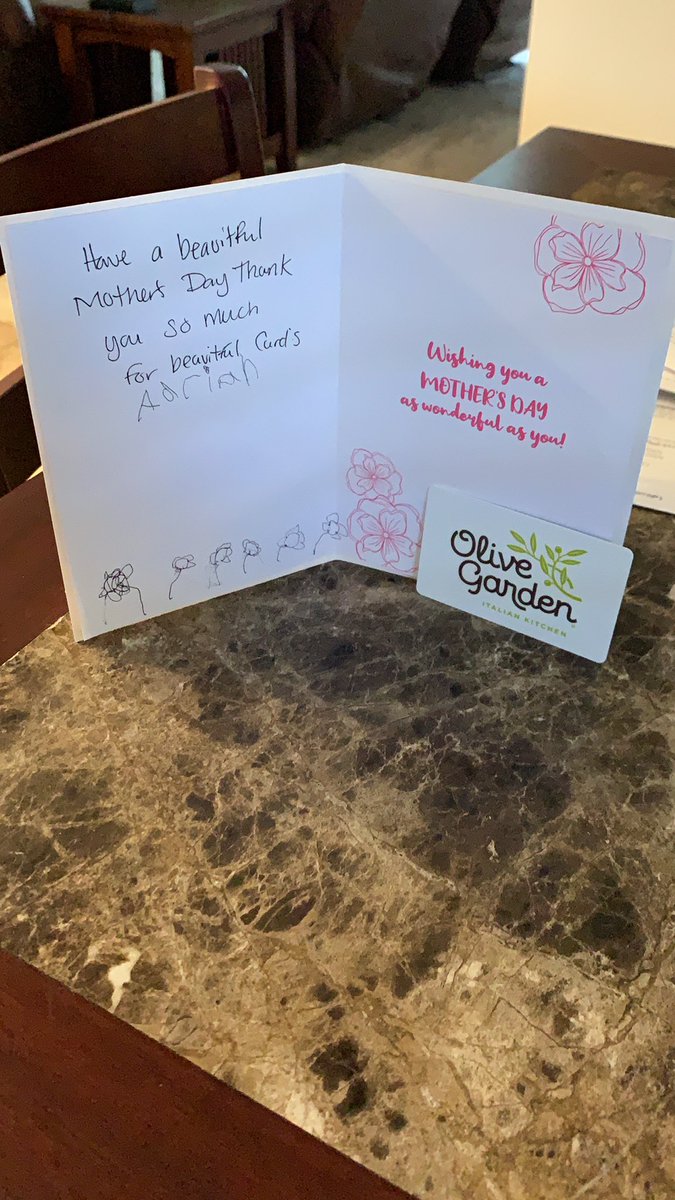 Have a beauitful
Mothers Day Thank
you so much
for beauitful Card's
Adrian
Wishing you a
MOTHER'S DAY
as wonderful as you!
Olive
Garden
ITALIAN KITCHEN